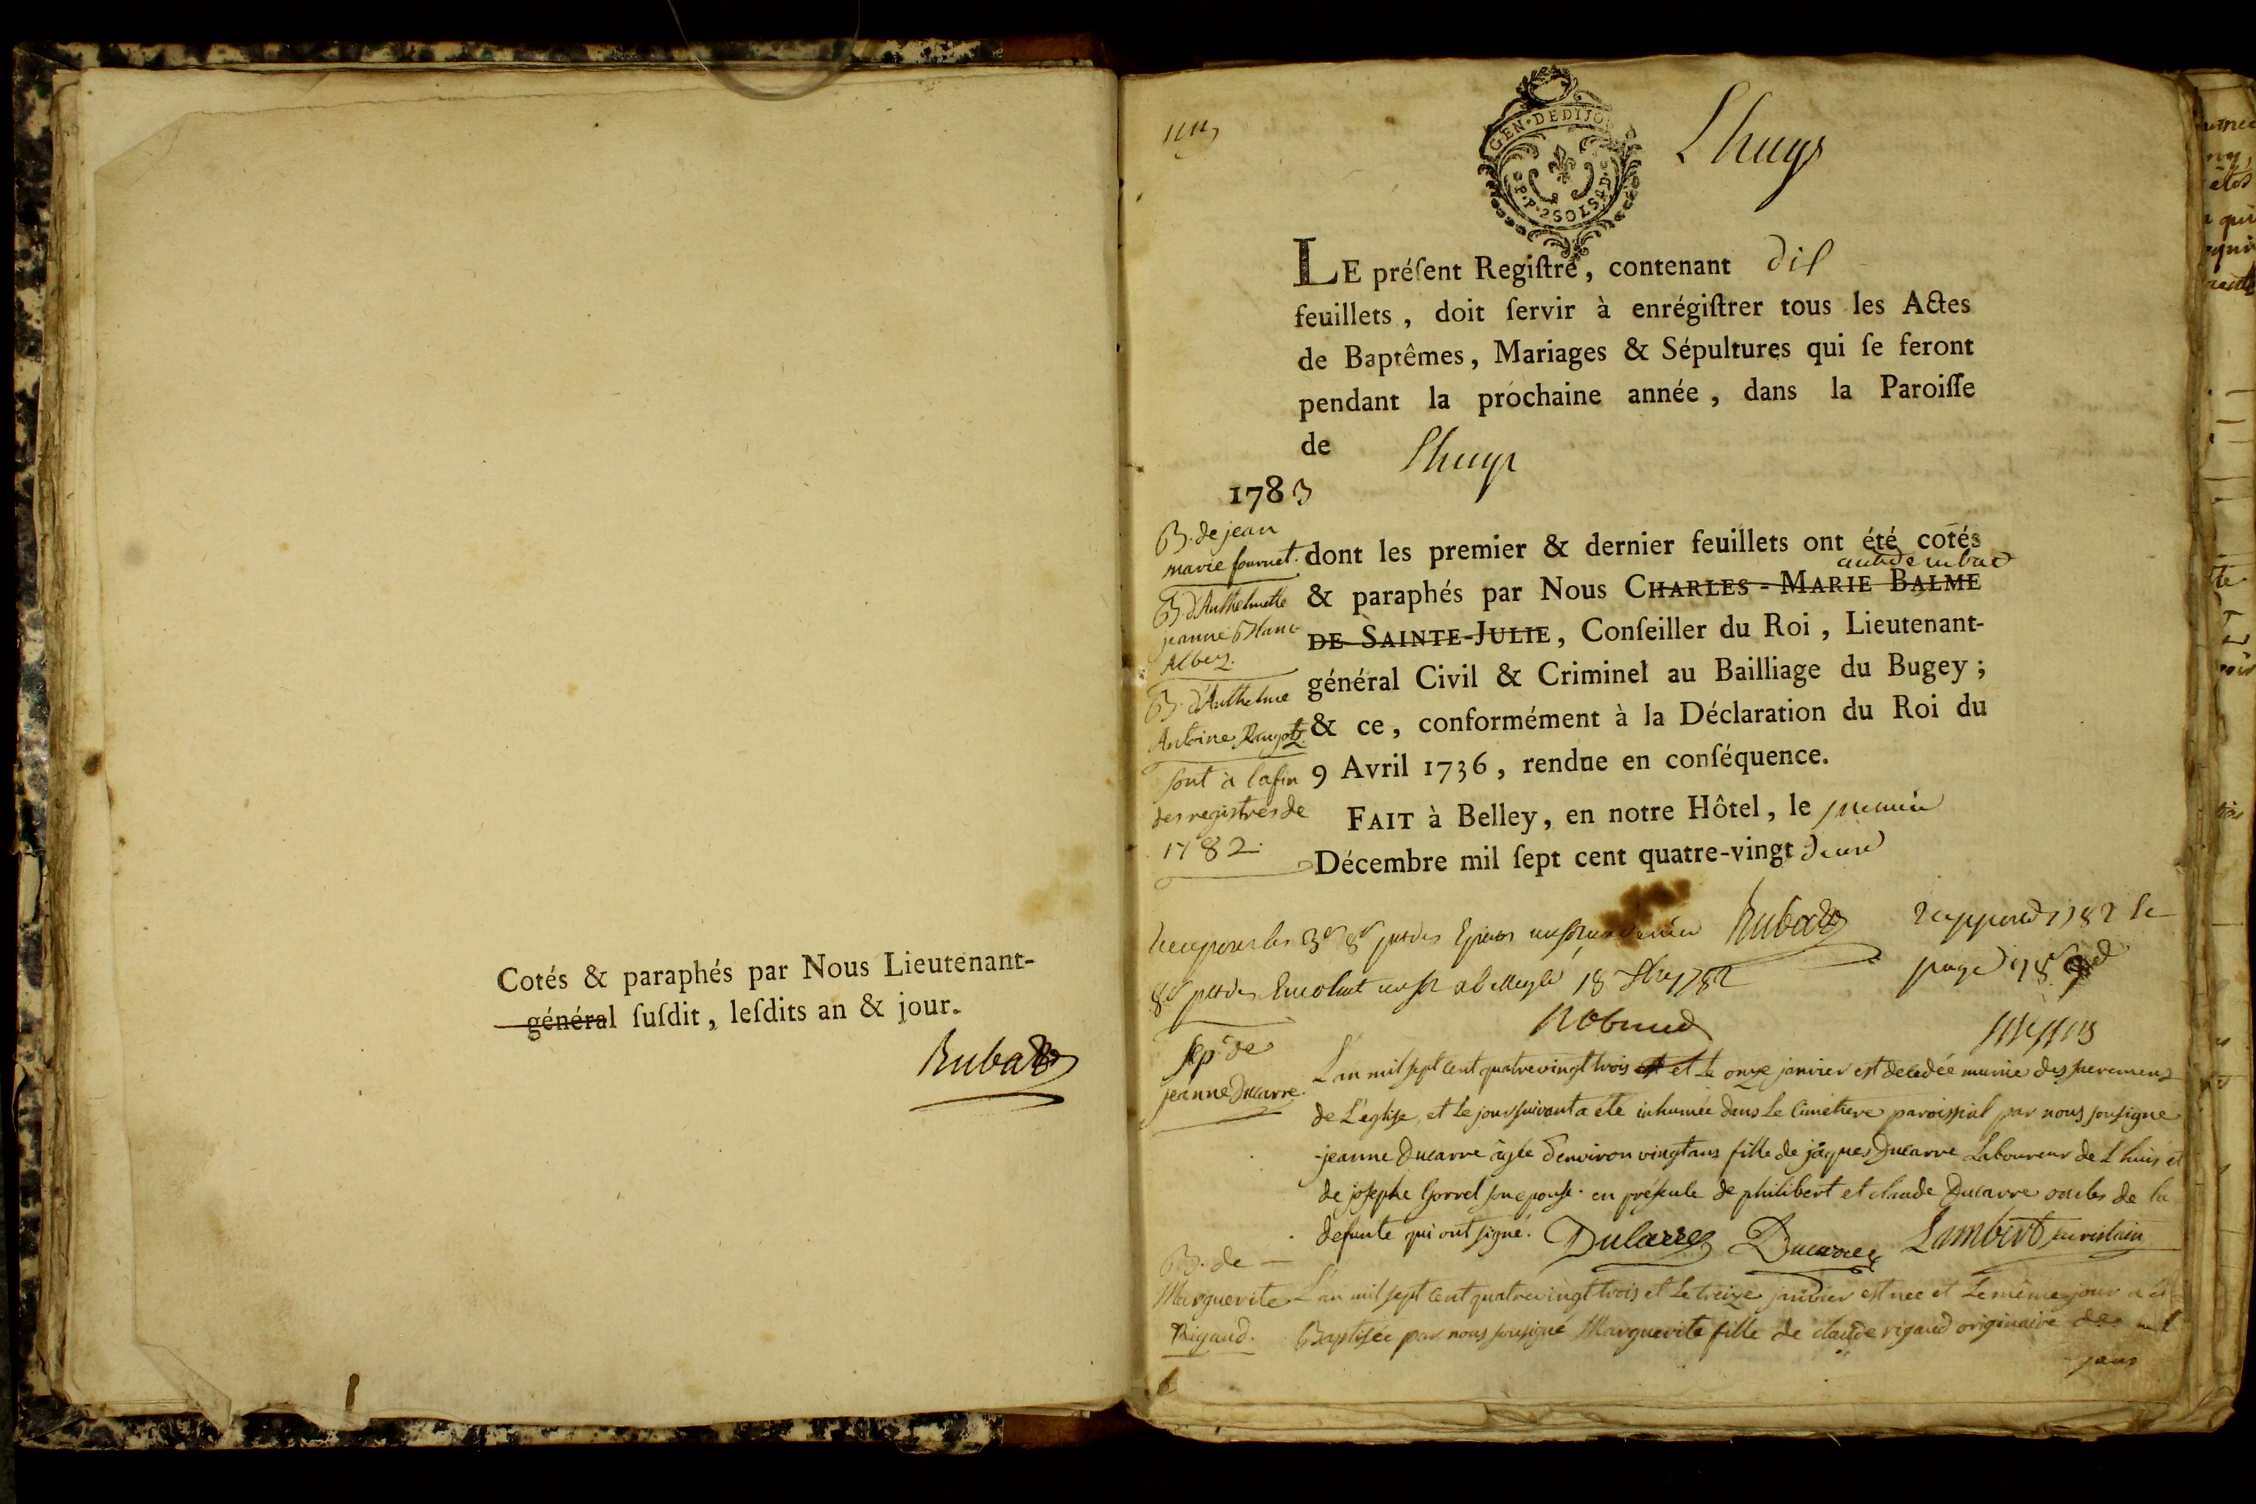 Cotés & paraphés par Nous Lieutenant-
général ſuſdit, leſdits an & jour.
Rubat
GEN·DEDIJO
Lhuys
LE préſent Regiſtre, contenant dis
feuillets, doit ſervir à enrégiſtrer tous les Actes
de Baptêmes, Mariages & Sépultures qui ſe feront
pendant la prochaine année, dans la Paroiſſe
de Lhuys
1783
dont les premier & dernier feuillets ont été cotés
& paraphés par Nous CHARLES-MARIE BALME
DE SAINTE-JULIE, Conſeiller du Roi, Lieutenant-
général Civil & Criminel au Bailliage du Bugey;
& ce, conformément à la Déclaration du Roi du
9 Avril 1736, rendue en conſéquence.
FAIT à Belley, en notre Hôtel, le premier
Décembre mil ſept cent quatre-vingt deux
B. de jean
marie fournet.
B. d'Anthelmette
jeanne
B. d'Anthelme
Antoine
sont à la fin
des registres de
1782.
Rubat
Sep.re de
jeanne Ducarre.
L'an mil sept cent quatrevingt trois et le onze janvier est decedée munie des sacremens
de L'eglise, et le jour suivant a été inhumée dans le Cimétiere paroissial par nous soussigné
jeanne Ducarre agée d'environ vingt ans fille de jâques Ducarre Laboureur de Lhuis et
de josephe Gorrel son epouse. en présence de philibert et claude Ducarre oncles de la
defunte qui ont signé. Ducarre Ducarre Lambert sacristain
B. de
Marguerite
Rigaud.
L'an mil sept cent quatrevingt trois et le treize janvier est nee et le même jour a été
Baptisée par nous soussigné Marguerite fille de claude rigaud originaire de